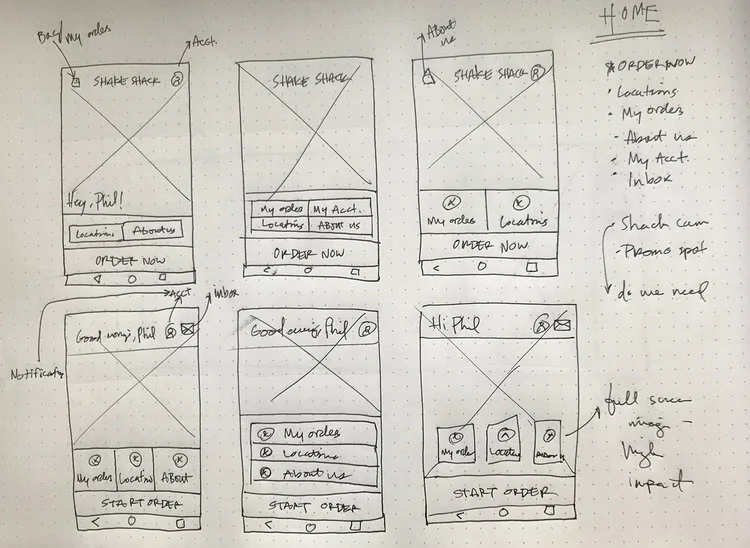 Bag/my orders
Acct.
SHAKE SHACK
Hey, Phil!
Locations
About us
ORDER NOW
SHAKE SHACK
My orders
My Acct.
Locations
ABOUT US
ORDER NOW
About
us
SHAKE SHACK
My orders
Locations
ORDER NOW
HOME
ORDER NOW
• Locations
• My orders
• About us
• My Acct.
• Inbox
Shack cam
- Promo spot
do we need
Acct
inbox
Phil
My orders
Locations
ABOUT
START ORDER
Phil
My orders
Locations
About us
START ORDER
Hi Phil
My orders
START ORDER
full screen
high
impact